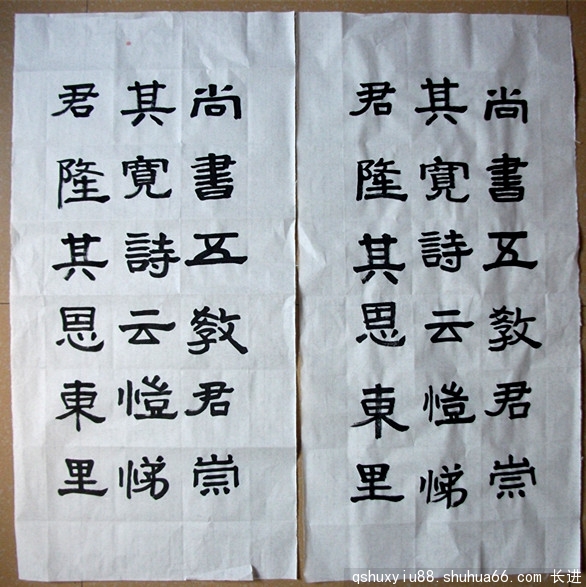 尚書五教君崇
其寬詩云愷悌
君隆其恩東里
尚書五教君崇
其寬詩云愷悌
君隆其恩東里
qshuxyiu88.shuhua66.com 长进